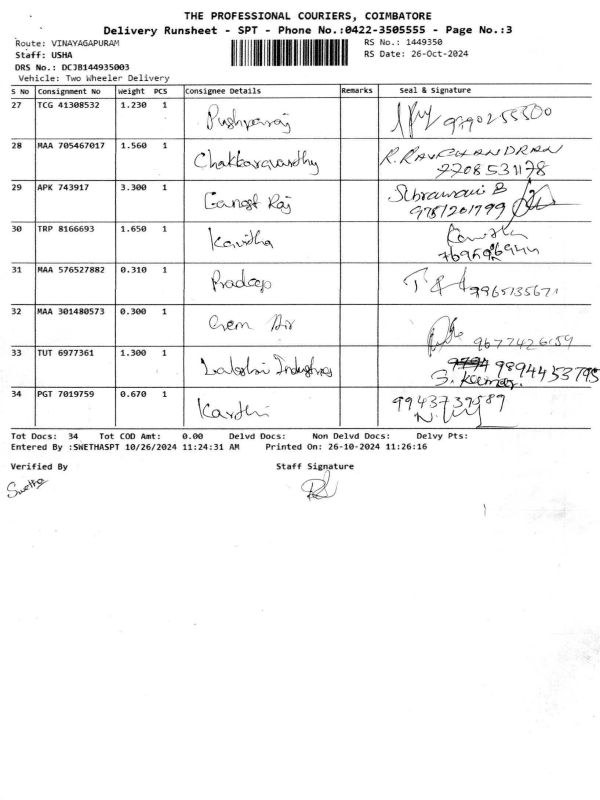 THE PROFESSIONAL COURIERS, COIMBATORE
Delivery Runsheet - SPT - Phone No.:0422-3505555 - Page No.:3
Route: VINAYAGAPURAM RS No.: 1449350
Staff: USHA RS Date: 26-Oct-2024
DRS No.: DCJB144935003
Vehicle: Two Wheeler Delivery
S No Consignment No Weight PCS Consignee Details Remarks Seal & Signature
27 TCG 41308532 1.230 1 Pushparaj
28 MAA 705467017 1.560 1 Chakkaravarthy R. RAVICHANDRAN
7708531178
29 APK 743917 3.300 1 Ganesh Raj
9787201799
30 TRP 8166693 1.650 1 Kavitha Kavitha
31 MAA 576527882 0.310 1 Pradeep 9965135671
32 MAA 301480573 0.300 1 Gem Air
9677426159
33 TUT 6977361 1.300 1 Lakshmi Industries 9894453795
S. Kumar
34 PGT 7019759 0.670 1 Karthi 9943739589
Tot Docs: 34 Tot COD Amt: 0.00 Delvd Docs: Non Delvd Docs: Delvy Pts:
Entered By :SWETHASPT 10/26/2024 11:24:31 AM Printed On: 26-10-2024 11:26:16
Verified By Staff Signature
Swetha